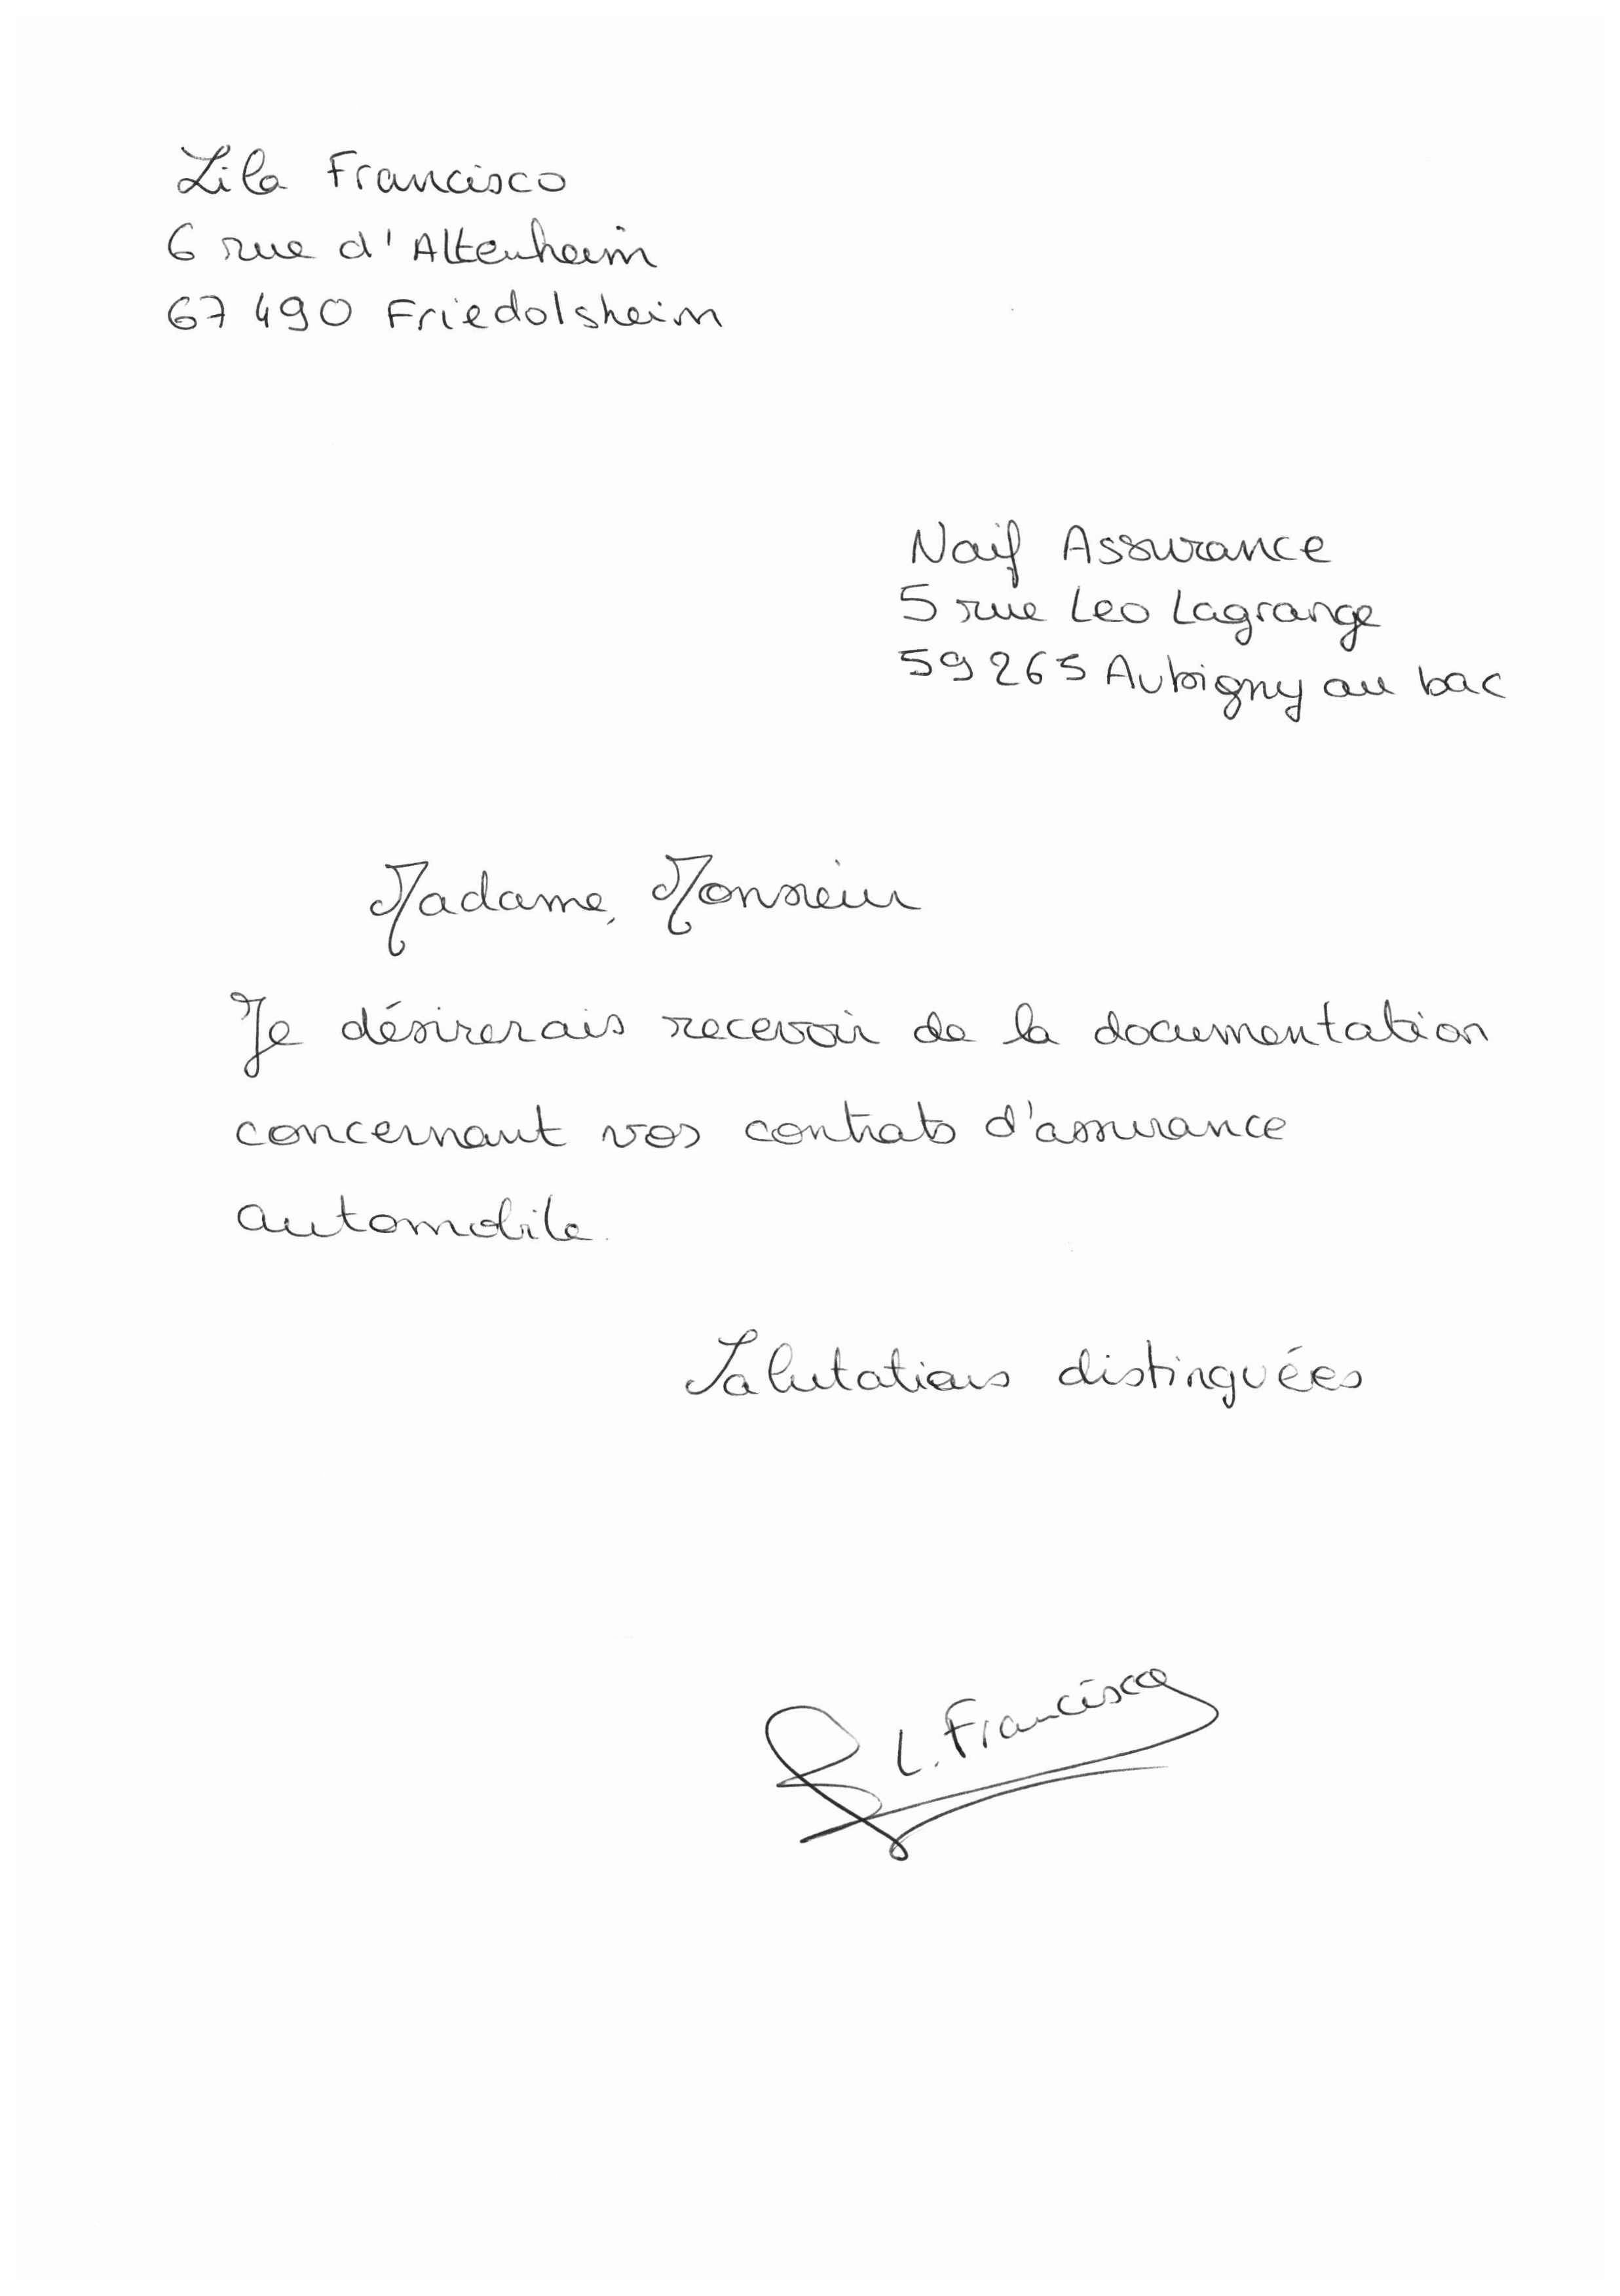 Lila Francisco
6 rue d'Altenheim
67 490 Friedolsheim
Naif Assurance
5 rue Leo Lagrange
59 265 Aubigny au bac
Madame, Monsieur
Je désirerais recevoir de la documentation
concernant vos contrats d'assurance
automobile.
Salutations distinguées
L. Francisco